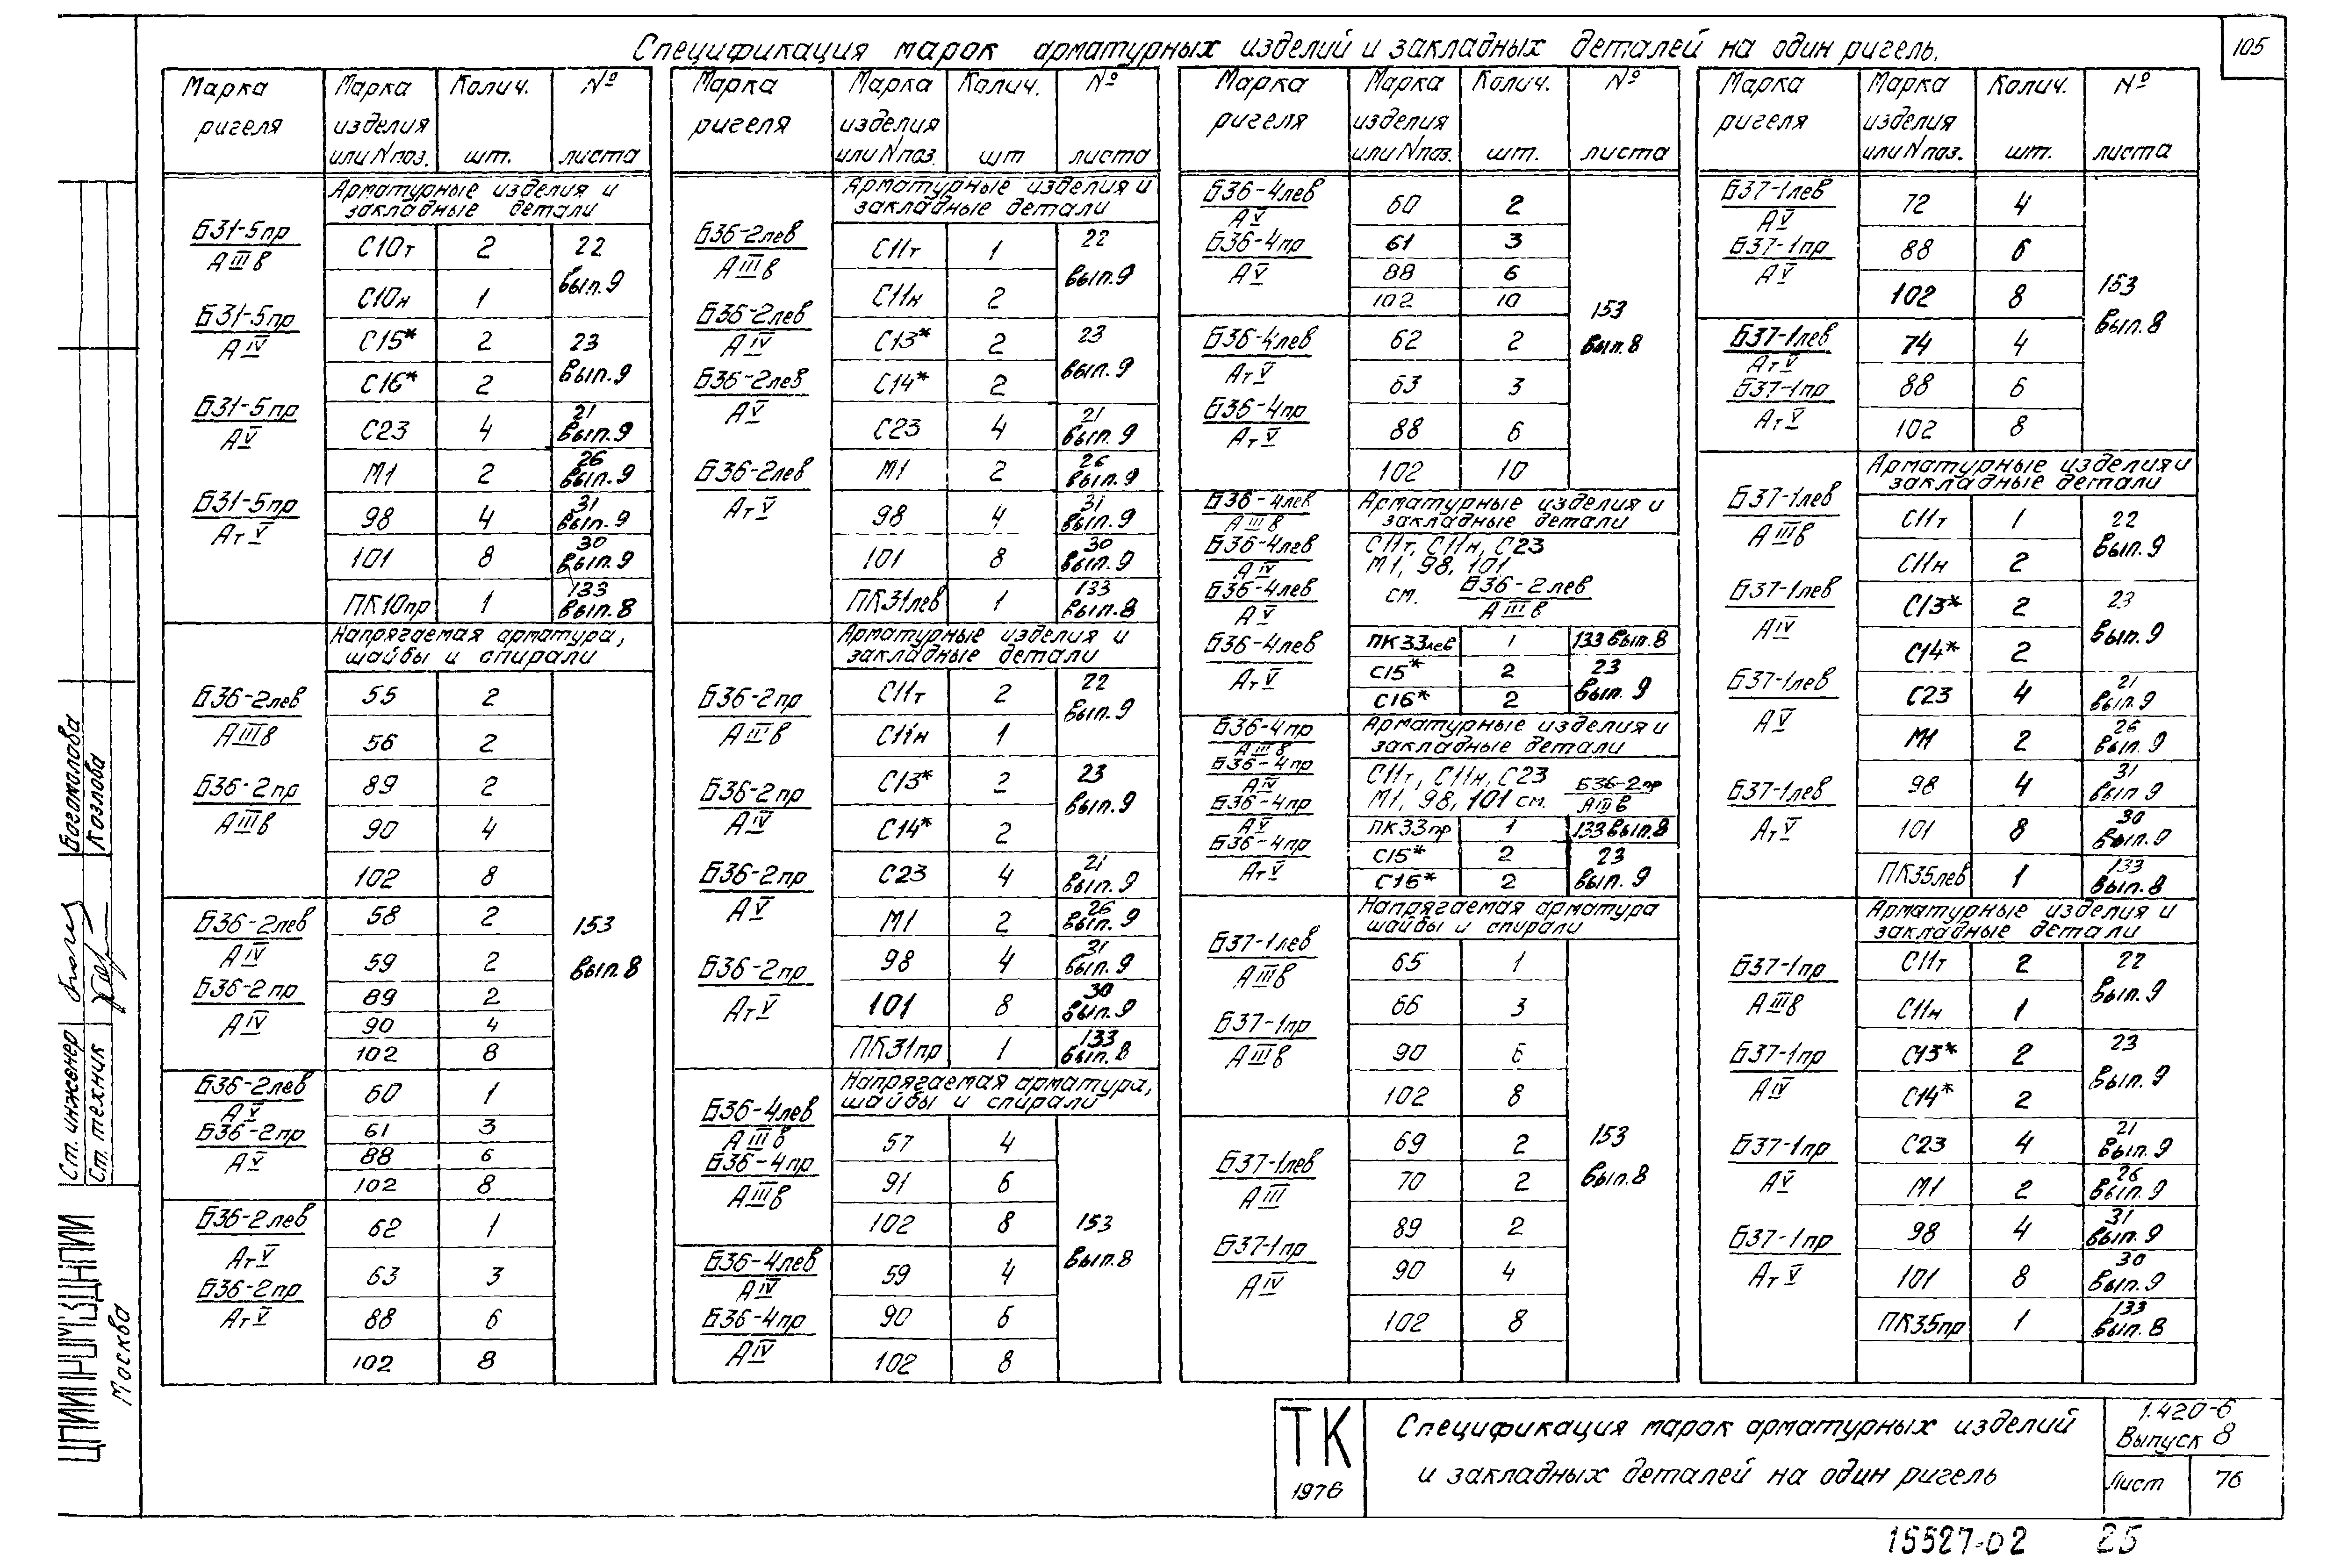 105
Спецификация марок арматурных изделий и закладных деталей на один ригель.
Марка ригеля | Марка изделия или N поз. | Колич. шт. | № листа
Арматурные изделия и закладные детали
Б31-5пр АIIIв
Б31-5пр АIV
Б31-5пр АV
Б31-5пр АтV
С10т 2 22 вып.9
С10н 1
С15* 2 23 вып.9
С16* 2
С23 4 21 вып.9
М1 2 26 вып.9
98 4 31 вып.9
101 8 30 вып.9
ПК10пр 1 133 вып.8
Напрягаемая арматура, шайбы и спирали
Б36-2лев АIIIв
Б36-2пр АIIIв
55 2
56 2
89 2
90 4
102 8
153 вып.8
Б36-2лев АIV
Б36-2пр АIV
58 2
59 2
89 2
90 4
102 8
Б36-2лев АV
Б36-2пр АV
60 1
61 3
88 6
102 8
Б36-2лев АтV
Б36-2пр АтV
62 1
63 3
88 6
102 8
Марка ригеля | Марка изделия или N поз. | Колич. шт | № листа
Арматурные изделия и закладные детали
Б36-2лев АIIIв
Б36-2лев АIV
Б36-2лев АV
Б36-2лев АтV
С11т 1 22 вып.9
С11н 2
С13* 2 23 вып.9
С14* 2
С23 4 21 вып.9
М1 2 26 вып.9
98 4 31 вып.9
101 8 30 вып.9
ПК31лев 1 133 вып.8
Арматурные изделия и закладные детали
Б36-2пр АIIIв
Б36-2пр АIV
Б36-2пр АV
Б36-2пр АтV
С11т 2 22 вып.9
С11н 1
С13* 2 23 вып.9
С14* 2
С23 4 21 вып.9
М1 2 26 вып.9
98 4 31 вып.9
101 8 30 вып.9
ПК31пр 1 133 вып.8
Напрягаемая арматура, шайбы и спирали
Б36-4лев АIIIв
Б36-4пр АIIIв
57 4
91 6
102 8
153 вып.8
Б36-4лев АIV
Б36-4пр АIV
59 4
90 6
102 8
Марка ригеля | Марка изделия или N поз. | Колич. шт. | № листа
Б36-4лев АV
Б36-4пр АV
60 2
61 3
88 6
102 10
153 вып.8
Б36-4лев АтV
Б36-4пр АтV
62 2
63 3
88 6
102 10
Арматурные изделия и закладные детали
Б36-4лев АIIIв
Б36-4лев АIV
Б36-4лев АV
Б36-4лев АтV
С11т, С11н, С23
М1, 98, 101
см. Б36-2лев АIIIв
ПК33лев 1 133 вып.8
С15* 2 23 вып.9
С16* 2
Арматурные изделия и закладные детали
Б36-4пр АIIIв
Б36-4пр АIV
Б36-4пр АV
Б36-4пр АтV
С11т, С11н, С23
М1, 98, 101 см. Б36-2пр АIIIв
ПК33пр 1 133 вып.8
С15* 2 23 вып.9
С16* 2
Напрягаемая арматура шайбы и спирали
Б37-1лев АIIIв
Б37-1пр АIIIв
65 1
66 3
90 6
102 8
153 вып.8
Б37-1лев АIII
Б37-1пр АIV
69 2
70 2
89 2
90 4
102 8
Марка ригеля | Марка изделия или N поз. | Колич. шт. | № листа
Б37-1лев АV
Б37-1пр АV
72 4
88 6
102 8
153 вып.8
Б37-1лев АтV
Б37-1пр АтV
74 4
88 6
102 8
Арматурные изделия и закладные детали
Б37-1лев АIIIв
Б37-1лев АIV
Б37-1лев АV
Б37-1лев АтV
С11т 1 22 вып.9
С11н 2
С13* 2 23 вып.9
С14* 2
С23 4 21 вып.9
М1 2 26 вып.9
98 4 31 вып 9
101 8 30 вып.9
ПК35лев 1 133 вып.8
Арматурные изделия и закладные детали
Б37-1пр АIIIв
Б37-1пр АIV
Б37-1пр АV
Б37-1пр АтV
С11т 2 22 вып.9
С11н 1
С13* 2 23 вып.9
С14* 2
С23 4 21 вып.9
М1 2 26 вып.9
98 4 31 вып.9
101 8 30 вып.9
ПК35пр 1 133 вып.8
Ст. инженер Богомолова
Ст. техник Козлова
Москва
ТК
1976
Спецификация марок арматурных изделий
и закладных деталей на один ригель
1.420-6
Выпуск 8
Лист 76
15527-02 25